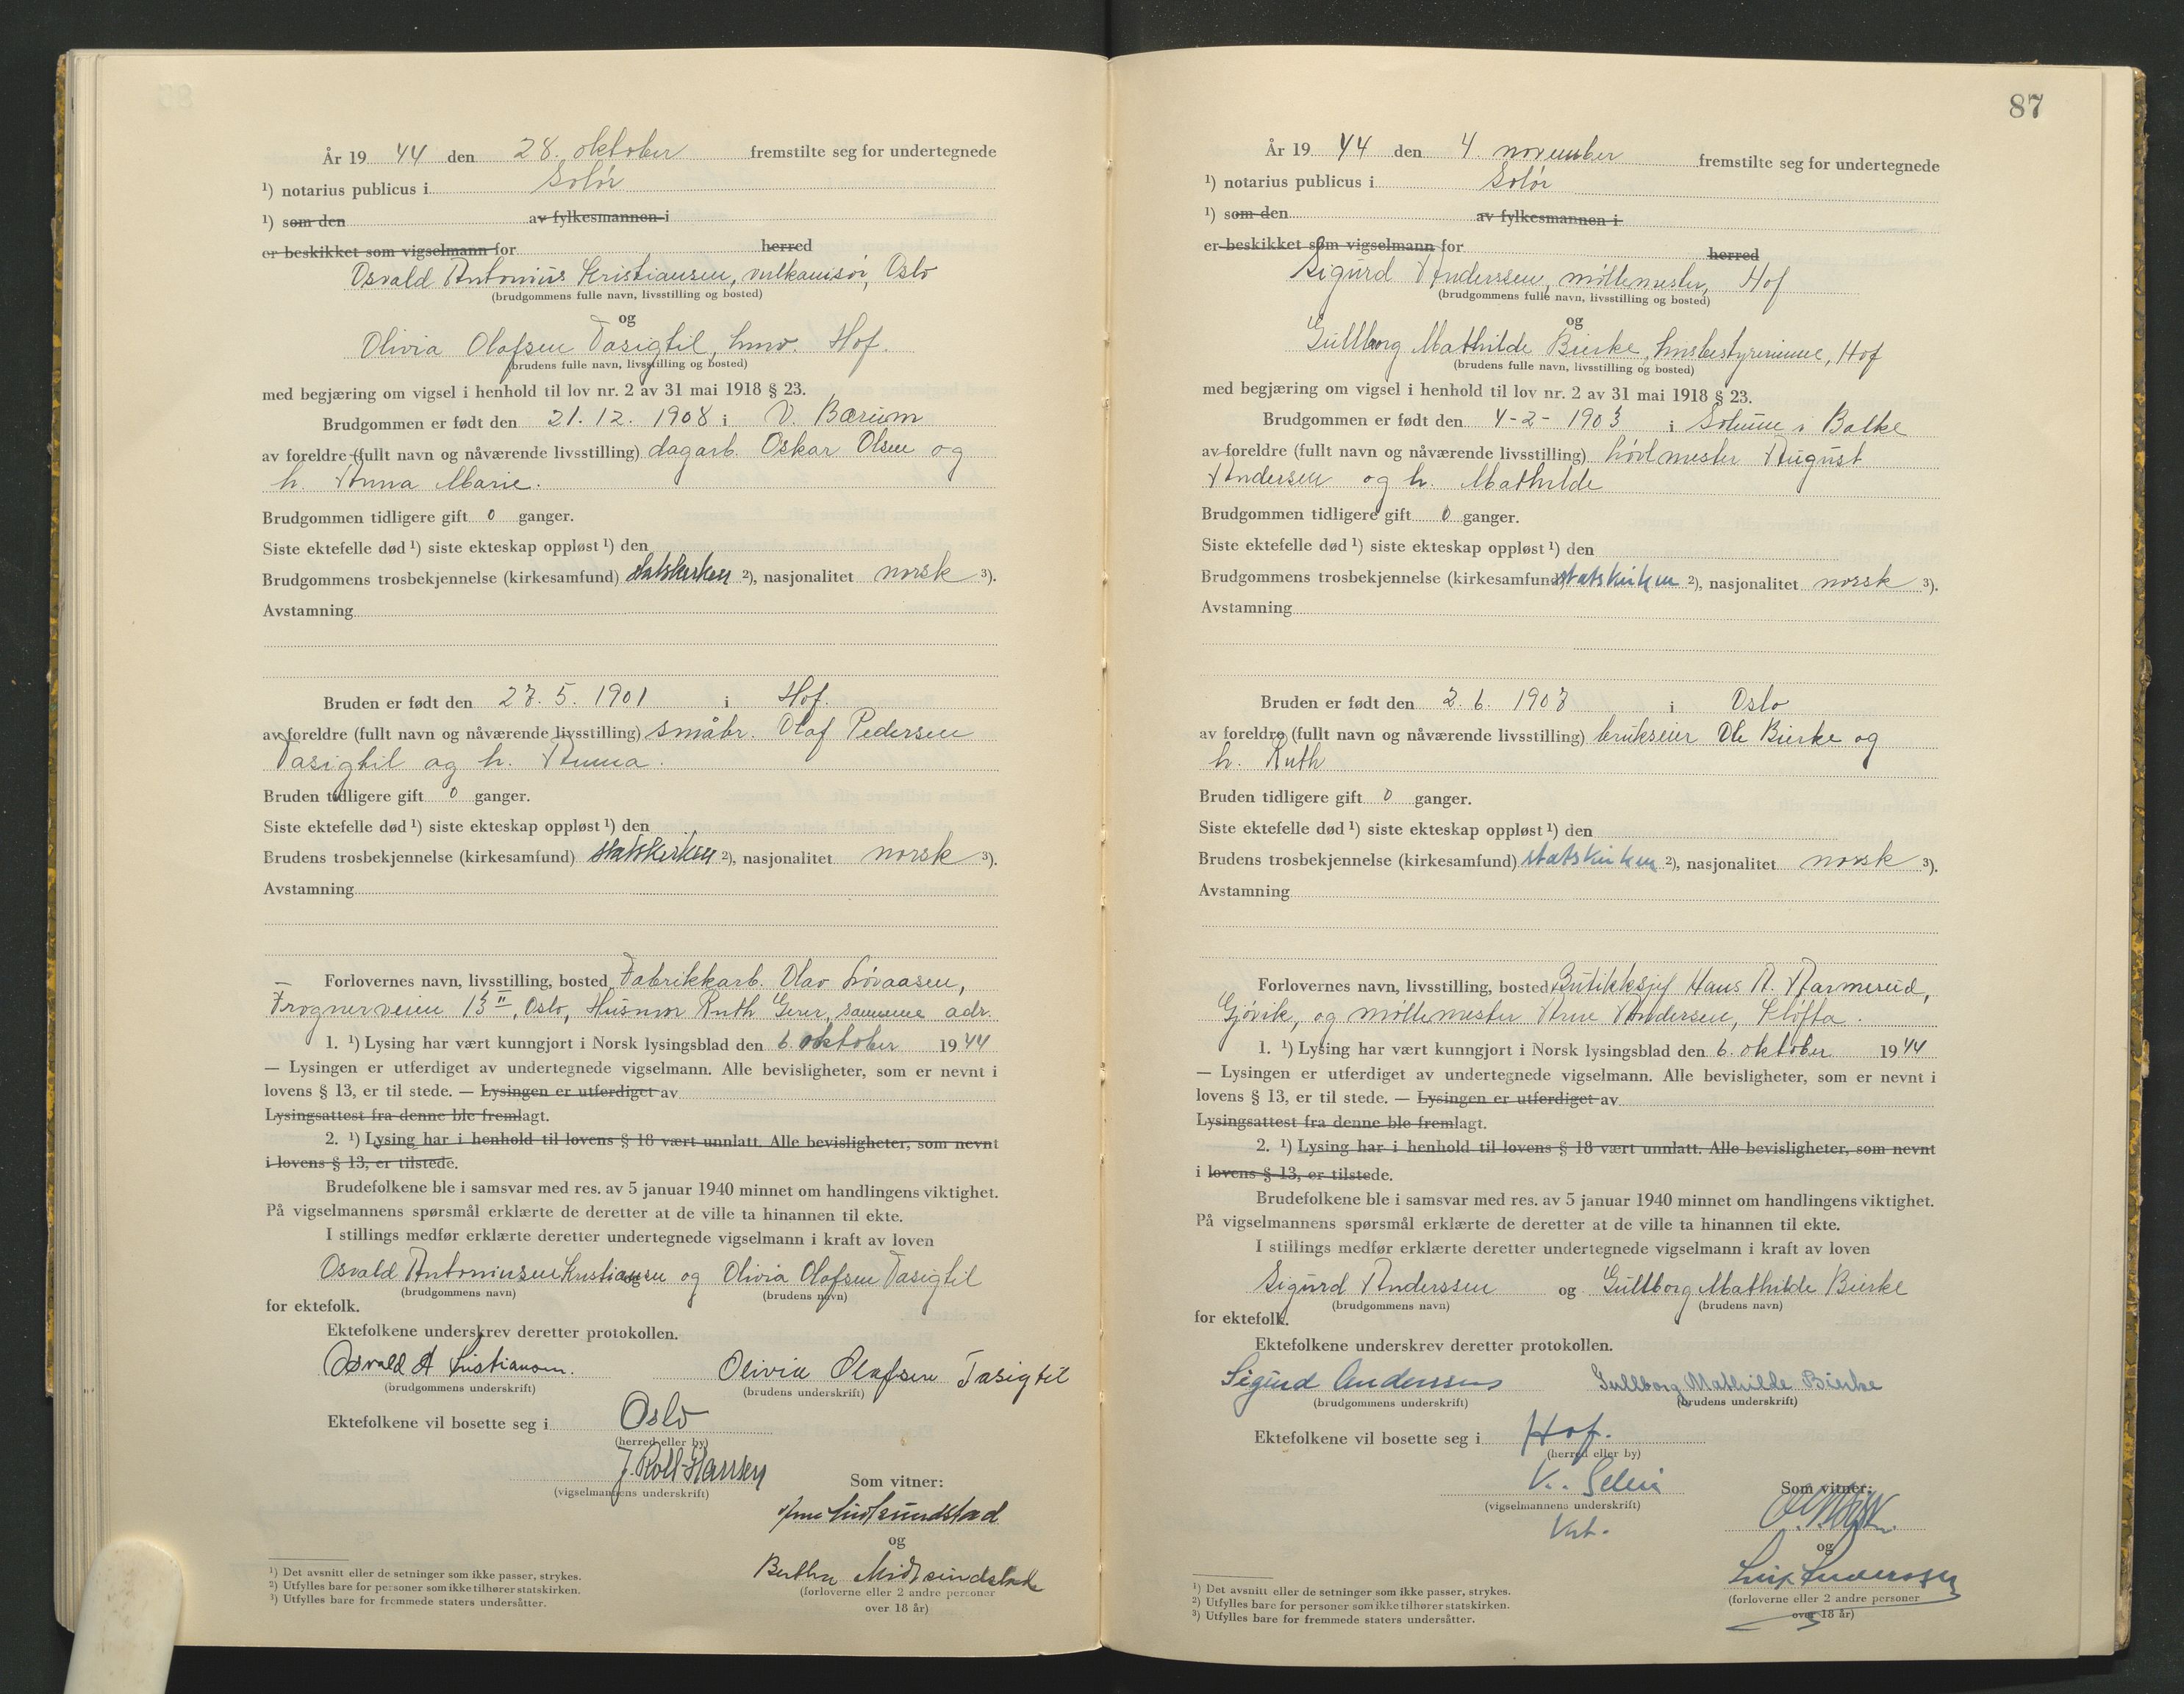 År 19 44 den 28. oktober fremstilte seg for undertegnede
1) notarius publicus i Solør
1) som den av fylkesmannen i
er beskikket som vigselmann for herred
Osvald Antonius Kristiansen, vulkanisør, Oslo
(brudgommens fulle navn, livsstilling og bosted)
og
Olivia Olafsen Tasigtil, hmv. Hof.
(brudens fulle navn, livsstilling og bosted)
med begjæring om vigsel i henhold til lov nr. 2 av 31 mai 1918 § 23.
Brudgommen er født den 21. 12. 1908 i V. Bærum
av foreldre (fullt navn og nåværende livsstilling) dagarb. Oskar Olsen og
h. Anna Marie.
Brudgommen tidligere gift 0 ganger.
Siste ektefelle død 1) siste ekteskap oppløst 1) den
Brudgommens trosbekjennelse (kirkesamfund) statskirken 2), nasjonalitet norsk 3).
Avstamning
Bruden er født den 27. 5. 1901 i Hof.
av foreldre (fullt navn og nåværende livsstilling) småbr. Olaf Pedersen
Tasigtil og h. Anna.
Bruden tidligere gift 0 ganger.
Siste ektefelle død 1) siste ekteskap oppløst 1) den
Brudens trosbekjennelse (kirkesamfund) statskirken 2), nasjonalitet norsk 3).
Avstamning
Forlovernes navn, livsstilling, bosted Fabrikkarb. Olav Løvaasen,
Frognerveien 15 II, Oslo, Husmor Ruth samme adr.
1. 1) Lysing har vært kunngjort i Norsk lysingsblad den 6. oktober 1944
— Lysingen er utferdiget av undertegnede vigselmann. Alle bevisligheter, som er nevnt i
lovens § 13, er til stede. — Lysingen er utferdiget av
Lysingsattest fra denne ble fremlagt.
2. 1) Lysing har i henhold til lovens § 18 vært unnlatt. Alle bevisligheter, som nevnt
i lovens § 13, er tilstede.
Brudefolkene ble i samsvar med res. av 5 januar 1940 minnet om handlingens viktighet.
På vigselmannens spørsmål erklærte de deretter at de ville ta hinannen til ekte.
I stillings medfør erklærte deretter undertegnede vigselmann i kraft av loven
Osvald Antoniusen Kristiansen og Olivia Olafsen Tasigtil
(brudgommens navn) (brudens navn)
for ektefolk.
Ektefolkene underskrev deretter protokollen.
Osvald A Kristiansen. Olivia Olafsen Tasigtil
(brudgommens underskrift) (brudens underskrift)
Ektefolkene vil bosette seg i Oslo
(herred eller by)
J. Roll-Hansen
(vigselmannens underskrift) Som vitner:
Midtsundstad
og
Berthe Midtsundstad
(forloverne eller 2 andre personer
over 18 år)
1) Det avsnitt eller de setninger som ikke passer, strykes.
2) Utfylles bare for personer som ikke tilhører statskirken.
3) Utfylles bare for fremmede staters undersåtter.
87
År 19 44 den 4. november fremstilte seg for undertegnede
1) notarius publicus i Solør
1) som den av fylkesmannen i
er beskikket som vigselmann for herred
Sigurd Anderssen, møllemester, Hof
(brudgommens fulle navn, livsstilling og bosted)
og
Gullborg Mathilde Bierke, husbestyrerinne, Hof
(brudens fulle navn, livsstilling og bosted)
med begjæring om vigsel i henhold til lov nr. 2 av 31 mai 1918 § 23.
Brudgommen er født den 4-2-1903 i Solum i Balke
av foreldre (fullt navn og nåværende livsstilling) høvlmester August
Andersen og h. Mathilde
Brudgommen tidligere gift 0 ganger.
Siste ektefelle død 1) siste ekteskap oppløst 1) den
Brudgommens trosbekjennelse (kirkesamfund) statskirken 2), nasjonalitet norsk 3).
Avstamning
Bruden er født den 2. 6. 1907 i Oslo
av foreldre (fullt navn og nåværende livsstilling) brukseier Ole Bierke og
h. Ruth
Bruden tidligere gift 0 ganger.
Siste ektefelle død 1) siste ekteskap oppløst 1) den
Brudens trosbekjennelse (kirkesamfund) statskirken 2), nasjonalitet norsk 3).
Avstamning
Forlovernes navn, livsstilling, bosted Butikksjef Hans A. Aarmerud,
Gjøvik, og møllemester Arne Andersen, Kløfta.
1. 1) Lysing har vært kunngjort i Norsk lysingsblad den 6. oktober 1944
— Lysingen er utferdiget av undertegnede vigselmann. Alle bevisligheter, som er nevnt i
lovens § 13, er til stede. — Lysingen er utferdiget av
Lysingsattest fra denne ble fremlagt.
2. 1) Lysing har i henhold til lovens § 18 vært unnlatt. Alle bevisligheter, som nevnt
i lovens § 13, er tilstede.
Brudefolkene ble i samsvar med res. av 5 januar 1940 minnet om handlingens viktighet.
På vigselmannens spørsmål erklærte de deretter at de ville ta hinannen til ekte.
I stillings medfør erklærte deretter undertegnede vigselmann i kraft av loven
Sigurd Anderssen og Gullborg Mathilde Bierke
(brudgommens navn) (brudens navn)
for ektefolk.
Ektefolkene underskrev deretter protokollen.
Sigurd Anderssen Gullborg Mathilde Bierke
(brudgommens underskrift) (brudens underskrift)
Ektefolkene vil bosette seg i Hof.
(herred eller by)
(vigselmannens underskrift) Som vitner:
og
Anderssen
(forloverne eller 2 andre personer
over 18 år)
1) Det avsnitt eller de setninger som ikke passer, strykes.
2) Utfylles bare for personer som ikke tilhører statskirken.
3) Utfylles bare for fremmede staters undersåtter.